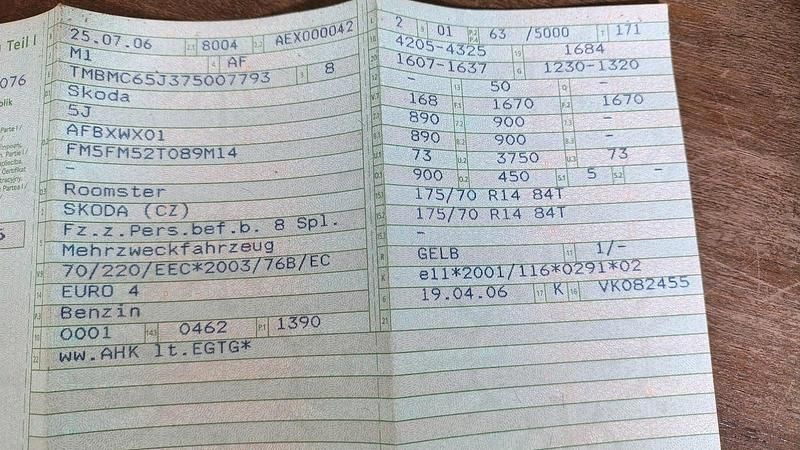 Teil I
25.07.06 2.1 8004 2.2 AEX000042
M1 4 AF
TMBMC65J375007793 3 8
Skoda
5J
AFBXWX01
FM5FM52T089M14
–
Roomster
SKODA (CZ)
Fz.z.Pers.bef.b. 8 Spl.
Mehrzweckfahrzeug
70/220/EEC*2003/76B/EC
EURO 4
Benzin
0001 14.1 0462 P.1 1390
ww.AHK lt.EGTG*
076
2 9 01 63 /5000 T 171
4205-4325 19 1684
1607-1637 G 1230-1320
– 13 50 Q –
168 F.1 1670 F.2 1670
890 7.2 900 7.3 –
890 8.2 900 8.3 –
73 U.2 3750 U.3 73
900 O.2 450 S.1 5 S.2 –
175/70 R14 84T
175/70 R14 84T
–
R GELB 11 1/–
K e11*2001/116*0291*02
6 19.04.06 17 K 16 VK082455
21